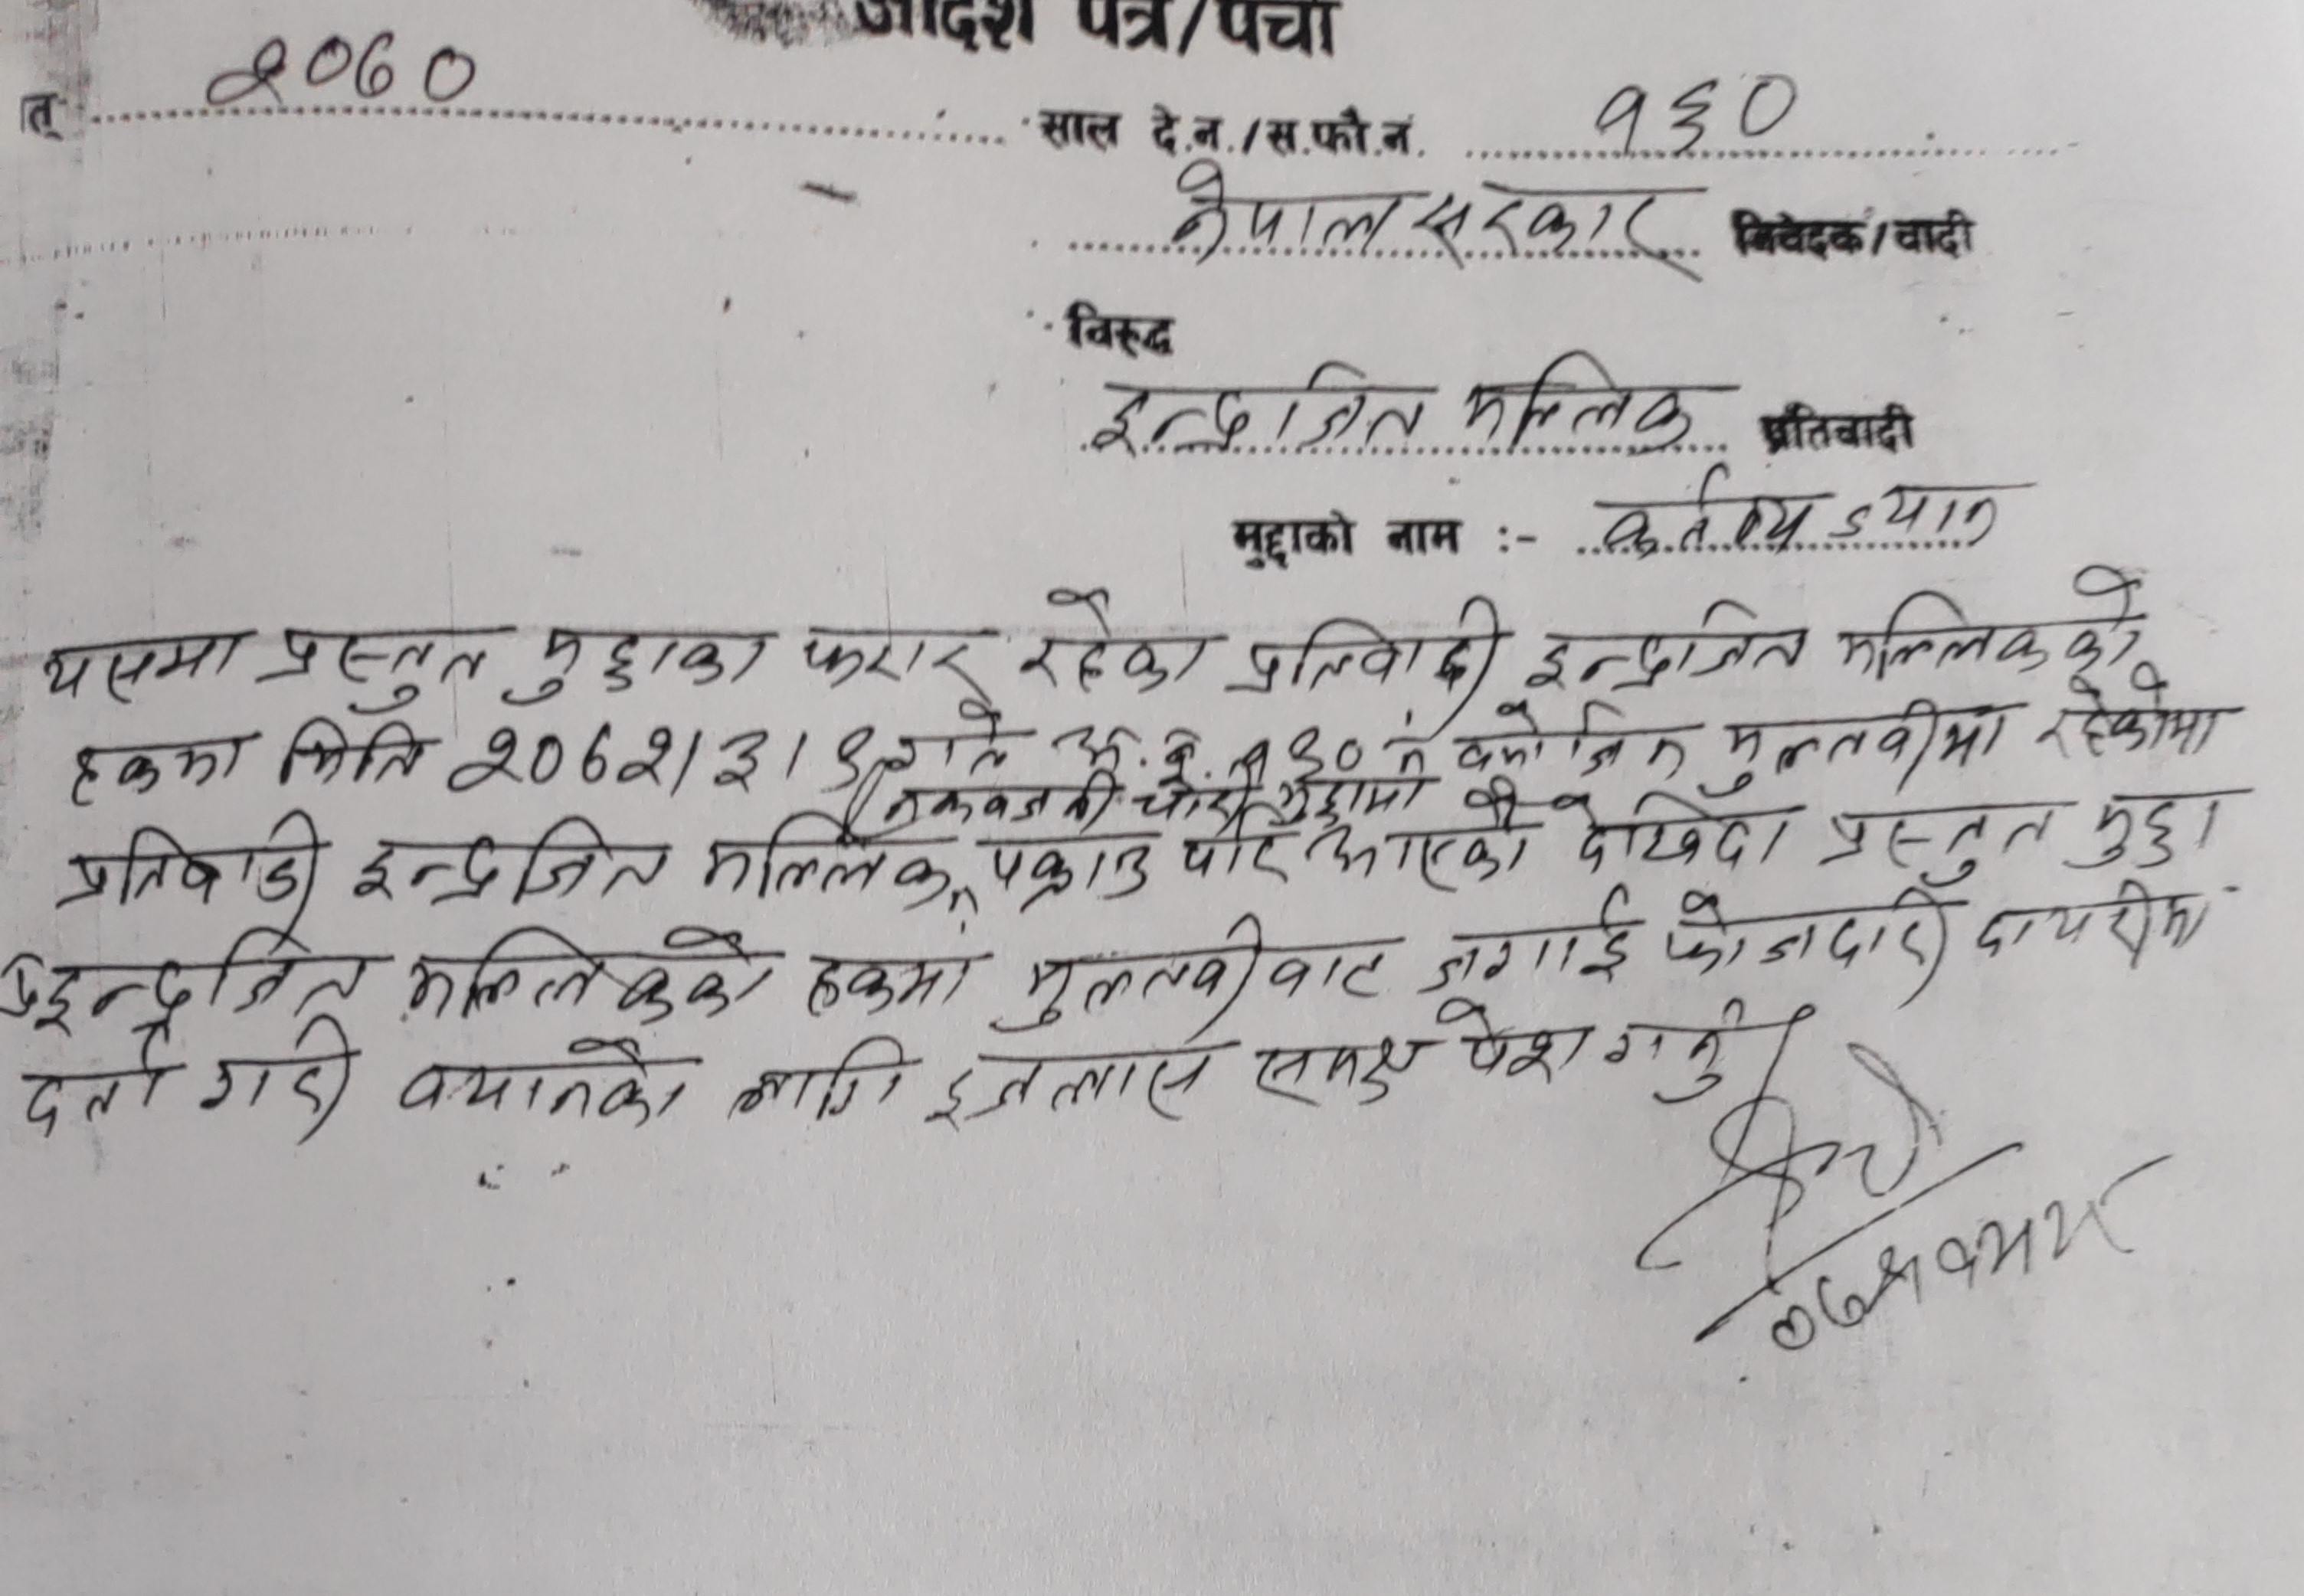 आदेश पत्र/पर्चा
त् २०६० साल दे.न./स.फौ.नं. १६०
नेपाल सरकार निवेदक/वादी
विरुद्ध
इन्द्रजित मल्लिक प्रतिवादी
मुद्दाको नाम :- कर्तव्य ज्यान
यसमा प्रस्तुत मुद्दाका फरार रहेका प्रतिवादी इन्द्रजित मल्लिकको
हकमा मिति २०६२।३। गते अ.बं. १९० नं बमोजिम मुलतवीमा रहेकोमा
नकवजनी चोरी मुद्दामा
प्रतिवादी इन्द्रजित मल्लिक पक्राउ परि आएको देखिँदा प्रस्तुत मुद्दा
इन्द्रजित मल्लिकको हकमा मुलतवीबाट जगाई फौजदारी दायरीमा
दर्ता गरी बयानको लागि इजलास समक्ष पेश गर्नु